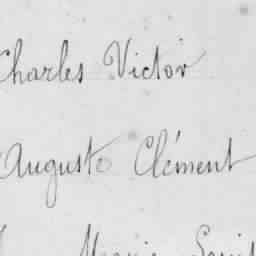 Charles Victor
Auguste Clément